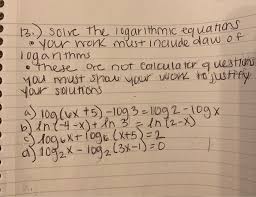 13.) Solve the logarithmic equations
• Your work must include law of
logarithms
• These are not calculater questions
you must show your work to justify
your solutions
a) log(6x+5)-log3=log2-logx
b) ln(-4-x)+ln3=ln(2-x)
c) log₆x+log₆(x+5)=2
d) log₂x-log₂(3x-1)=0